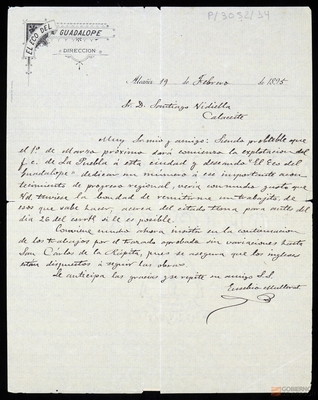 P/3032/34
EL ECO DEL
GUADALOPE
DIRECCION
Alcañiz 19 de Febrero de 1895
Sr. D. Santiago Vidiella
Calaceite
Muy Sr mio y amigo: Siendo probable que
el 1º de Marzo próximo dará comienzo la explotacion del
f. c. de La Puebla á esta ciudad y deseando "El Eco del
Guadalope" dedicar un número á ese importante acon-
tecimiento de progreso regional, veria con mucho gusto que
Vd tuviese la bondad de remitirme un trabajito, de
esos que sabe hacer acerca del citado tema para antes del
dia 26 del corrte si le es posible.
Conviene mucho ahora insistir en la continuacion
de los trabajos por el trazado aprobado sin variaciones hasta
San Cárlos de la Rápita, pues se asegura que los ingleses
están dispuestos á seguir las obras.
Le anticipa las gracias y se repite su amigo S. S.
Eusebio Mullerat
GOBIERNO